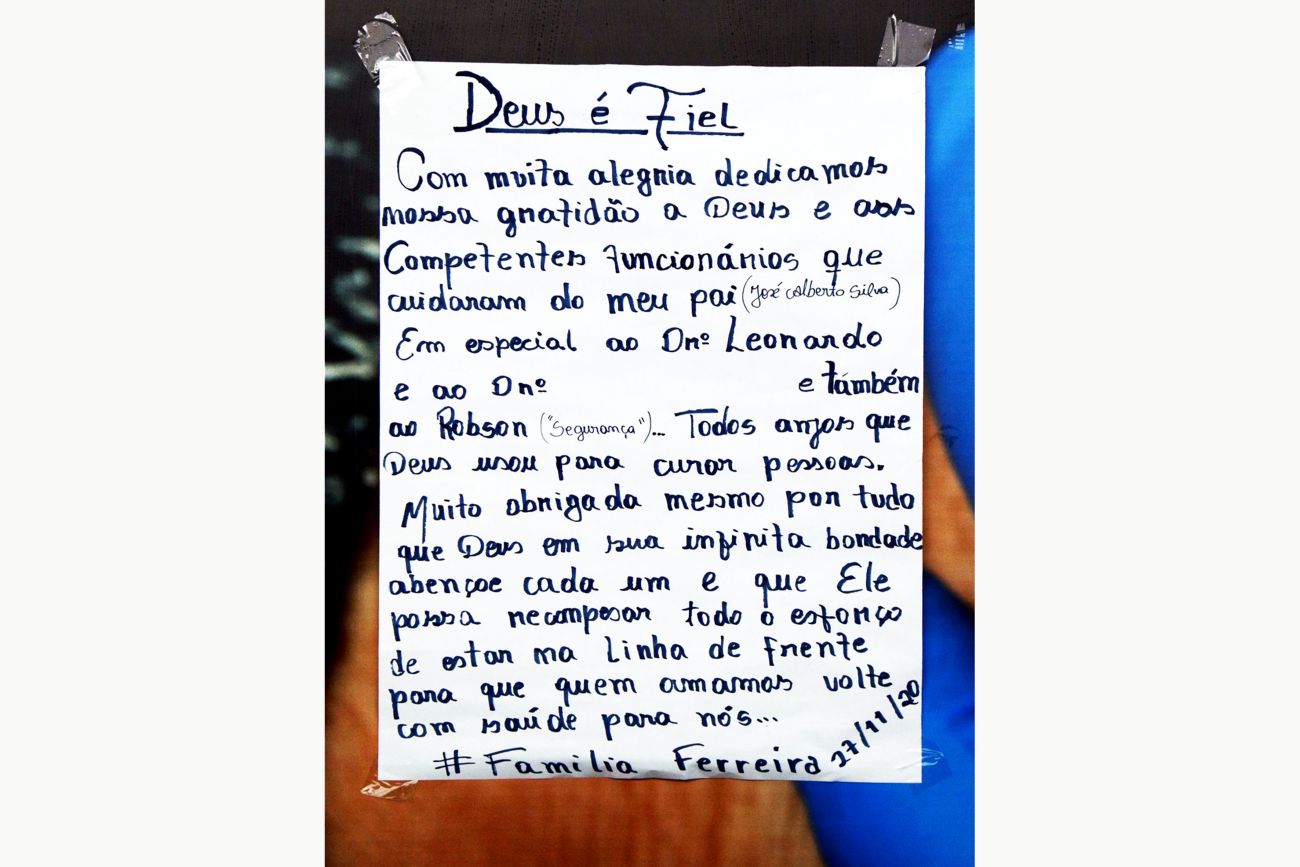 Deus é Fiel
Com muita alegria dedicamos
nossa gratidão a Deus e aos
Competentes funcionários que
cuidaram do meu pai (José Alberto Silva)
Em especial ao Drº Leonardo
e ao Drº e também
ao Robson ("Segurança")... Todos anjos que
Deus usou para curar pessoas.
Muito obrigada mesmo por tudo
que Deus em sua infinita bondade
abençoe cada um e que Ele
possa recompesar todo o esforço
de estar na linha de frente
para que quem amamos volte
com saúde para nós...
# Familia Ferreira 27/11/20